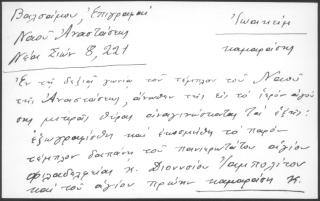 Βαλσάμου, Ἐπιγραφαὶ
Ναοῦ Ἀναστάσεως
Νέα Σιών 8, 221
καμαράσης
Ἐν τῇ δεξιᾷ γωνίᾳ τοῦ τέμπλου τοῦ Ναοῦ
τῆς Ἀναστάσεως, ἄνωθεν τῆς εἰς τὸ ἱερὸν ἀγούσης
μικρᾶς θύρας ἀναγινώσκεται τὰ ἑξῆς:
ἐζωγραφίσθη καὶ ἐκοσμήθη τὸ παρὸν
τέμπλον δαπάνῃ τοῦ πανιερωτάτου ἁγίου
Φιλαδελφείας κ. Διονυσίου
καὶ τοῦ ἁγίου πρώην καμαράση κ.